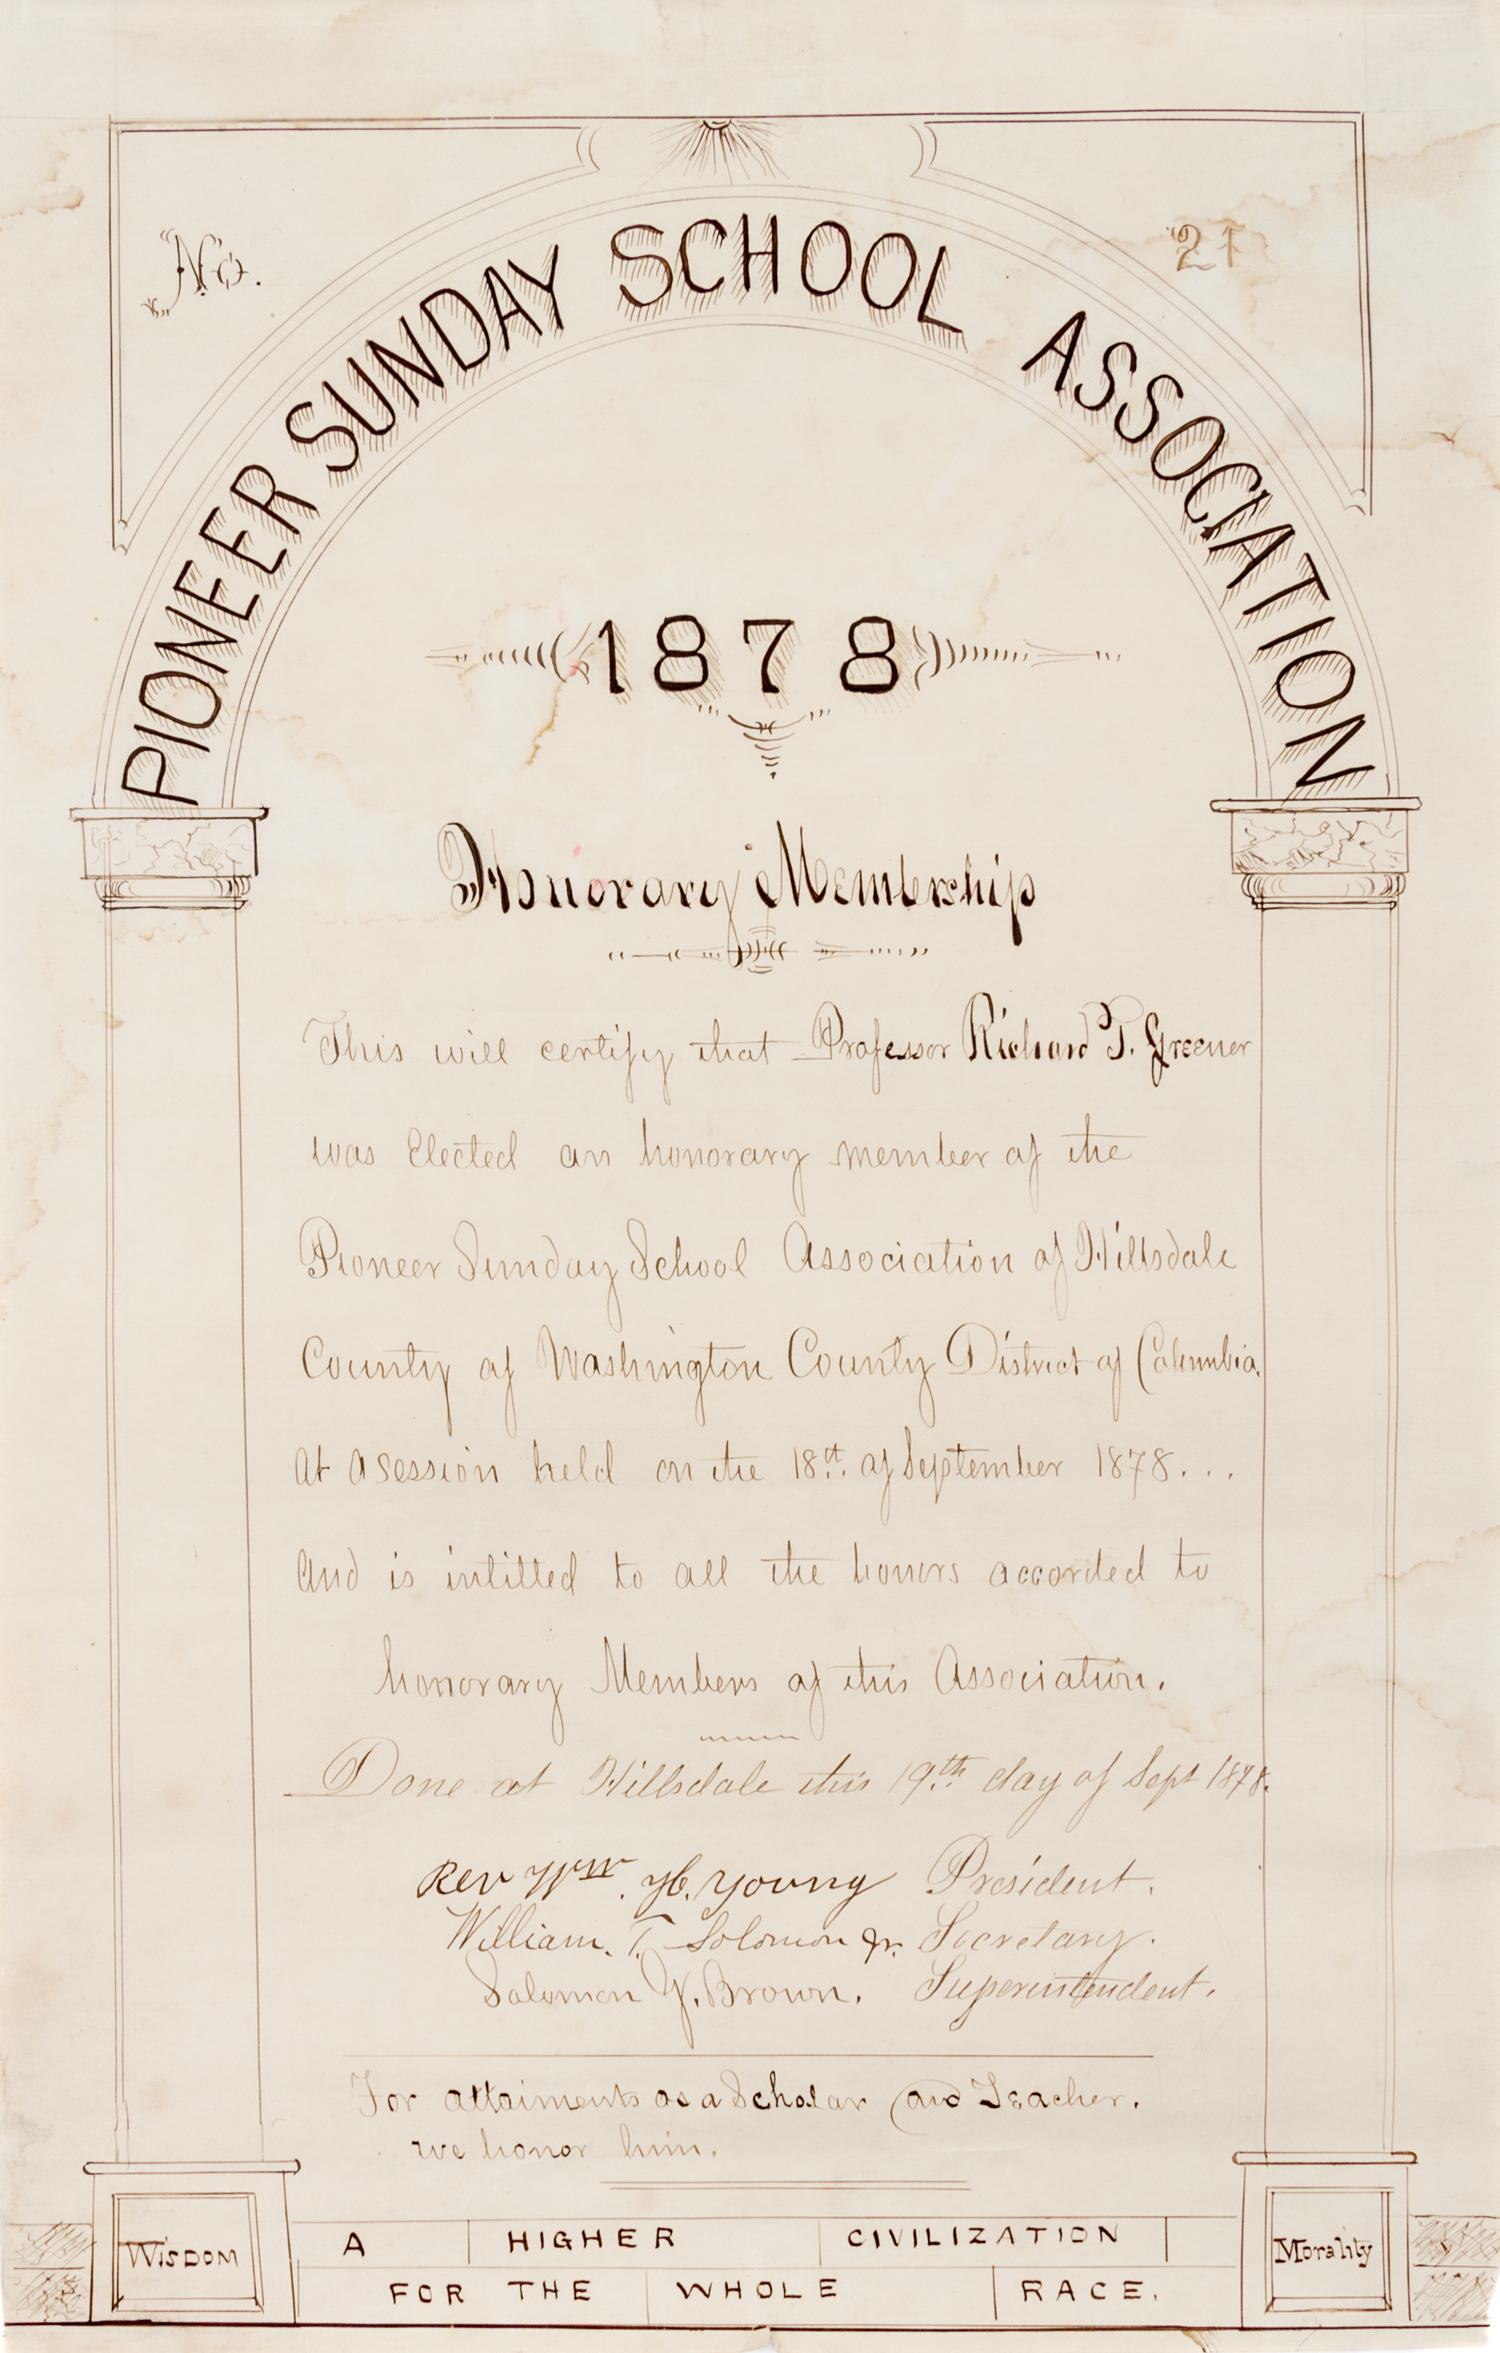 No. 21
PIONEER SUNDAY SCHOOL ASSOCIATION
1878
Honorary Membership
This will certify that Professor Richard T. Greener
was Elected an honorary member of the
Pioneer Sunday School Association of Hillsdale
County of Washington County District of Columbia.
At a session held on the 18th. of September 1878...
And is intitled to all the honors accorded to
honorary Members of this Association.
Done at Hillsdale this 19th. day of Sept 1878.
Rev Wm. H. Young President.
William. T. Solomon Jr. Secretary.
Solomon G. Brown. Superintendent.
For attaiments as a Scholar and Teacher.
we honor him.
WISDOM
Morality
A HIGHER CIVILIZATION
FOR THE WHOLE RACE.